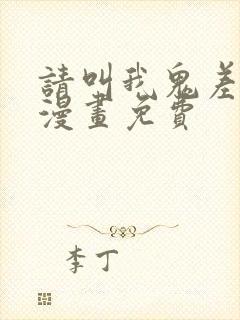 請叫我鬼差
漫畫免費
李丁